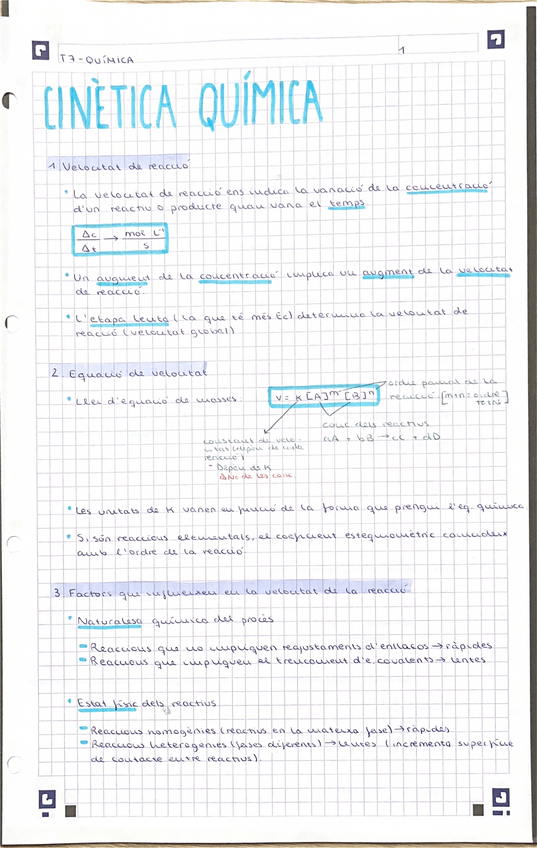 T7-QUÍMICA
1
CINÈTICA QUÍMICA
1. Velocitat de reacció
• La velocitat de reacció ens indica la variació de la concentració
d'un reactiu o producte quan varia el temps
Δc/Δt → mol L⁻¹/s
• Un augment de la concentració implica un augment de la velocitat
de reacció.
• L'etapa lenta (la que té més Ec) determina la velocitat de
reacció (velocitat global)
2. Equació de velocitat
• Llei d'equació de masses:
v = K [A]ᵐ [B]ⁿ
ordre parcial de la
reacció [m+n = ordre
total]
conc dels reactius
aA + bB → cC + dD
constant de velo-
citat
reacció)
- Depèn de
⚠No de les conc.
• Les unitats de K varien en funció de la forma que prengui l'eq. química
• Si són reaccions elementals, el coeficient estequiomètric coincideix
amb l'ordre de la reacció
3. Factors que influeixen en la velocitat de la reacció
• Naturalesa química del procés
- Reaccions que no impliquen reajustaments d'enllaços → ràpides
- Reaccions que impliquen el trencament d'e. covalents → lentes
• Estat físic dels reactius
- Reaccions homogènies (reactius en la mateixa fase) → ràpides
- Reaccions heterogènies (fases diferents) → lentes (incrementa superfície
de contacte entre reactius)